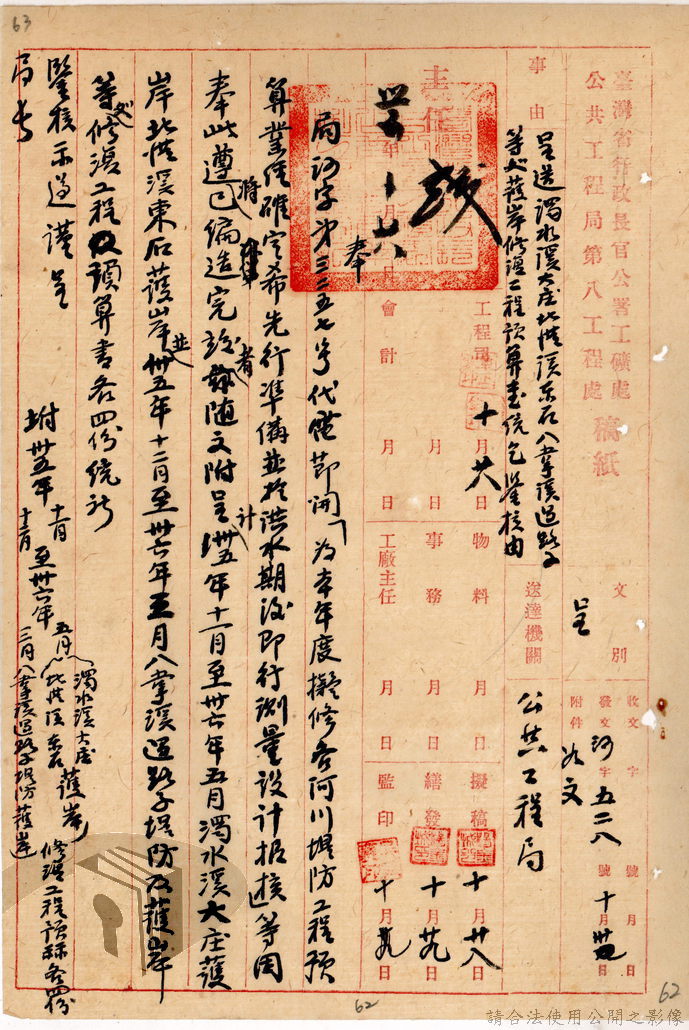 63
臺灣省行政長官公署工礦處
公共工程局第八工程處 稿紙
事由
呈送濁水溪大庄北港溪東石八掌溪過路子
等處護岸修復工程預算書統乞鑒核由
文別
呈
送達機關
公共工程局
收文 字 號 月 日
發文 河字 五二八 號 十月 日
附件 如文
主任
工程司 十月廿六日
會計 月 日
物料 月 日
事務 月 日
工廠主任 月 日
擬稿 十月廿八日
繕發 十月廿九日
監印 十月廿九日
奉
局河字第三二五七號代電節開「為本年度擬修各河川堤防工程預
算業經確定希先行準備並於洪水期後即行測量設計報核」等因
奉此遵已將編造完竣者隨文附呈計卅五年十一月至卅六年五月濁水溪大庄護
岸北港溪東石護岸並卅五年十二月至卅六年三月八掌溪過路子堤防及護岸
等處修復工程預算書各四份統祈
鑒核示遵謹呈
局長
附卅五年十一月至卅六年五月濁水溪大庄北港溪東石護岸
十二月 三月八掌溪過路子堤防護岸
修復工程預算各四份
62
62
請合法使用公開之影像